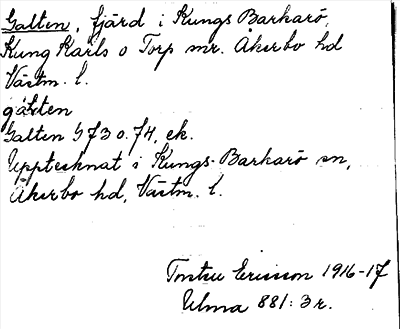 Galten, fjärd i Kungs Barkarö,
Kung Karls o Torp snr. Åkerbo hd
Västm. l.
gálten
Galten G 73 o. 74, ek.
Upptecknat i Kungs-Barkarö sn,
Åkerbo hd, Västm. l.
Ericsson 1916-17
Ulma 881:3 r.